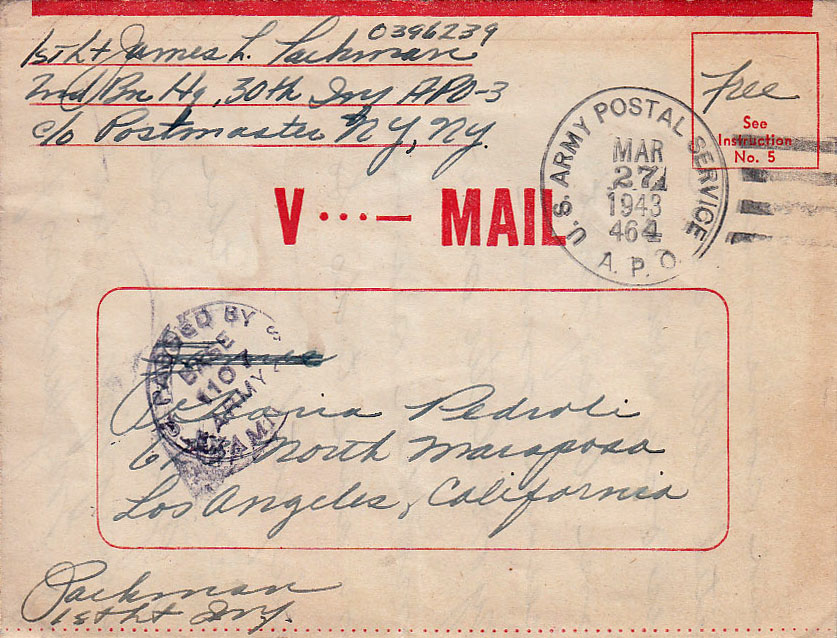 0396239
1st Lt James L. Packman
2nd Bn Hq, 30th Inf APO-3
c/o Postmaster NY, NY.
Free
See
Instruction
No. 5
U.S. ARMY POSTAL SERVICE
MAR
27
1943
464
A. P. O.
V ···— MAIL
PASSED BY
BASE
1107
ARMY
EXAMI
Maria Pedroli
North Mariposa
Los Angeles, California
Packman
1st Lt Inf.